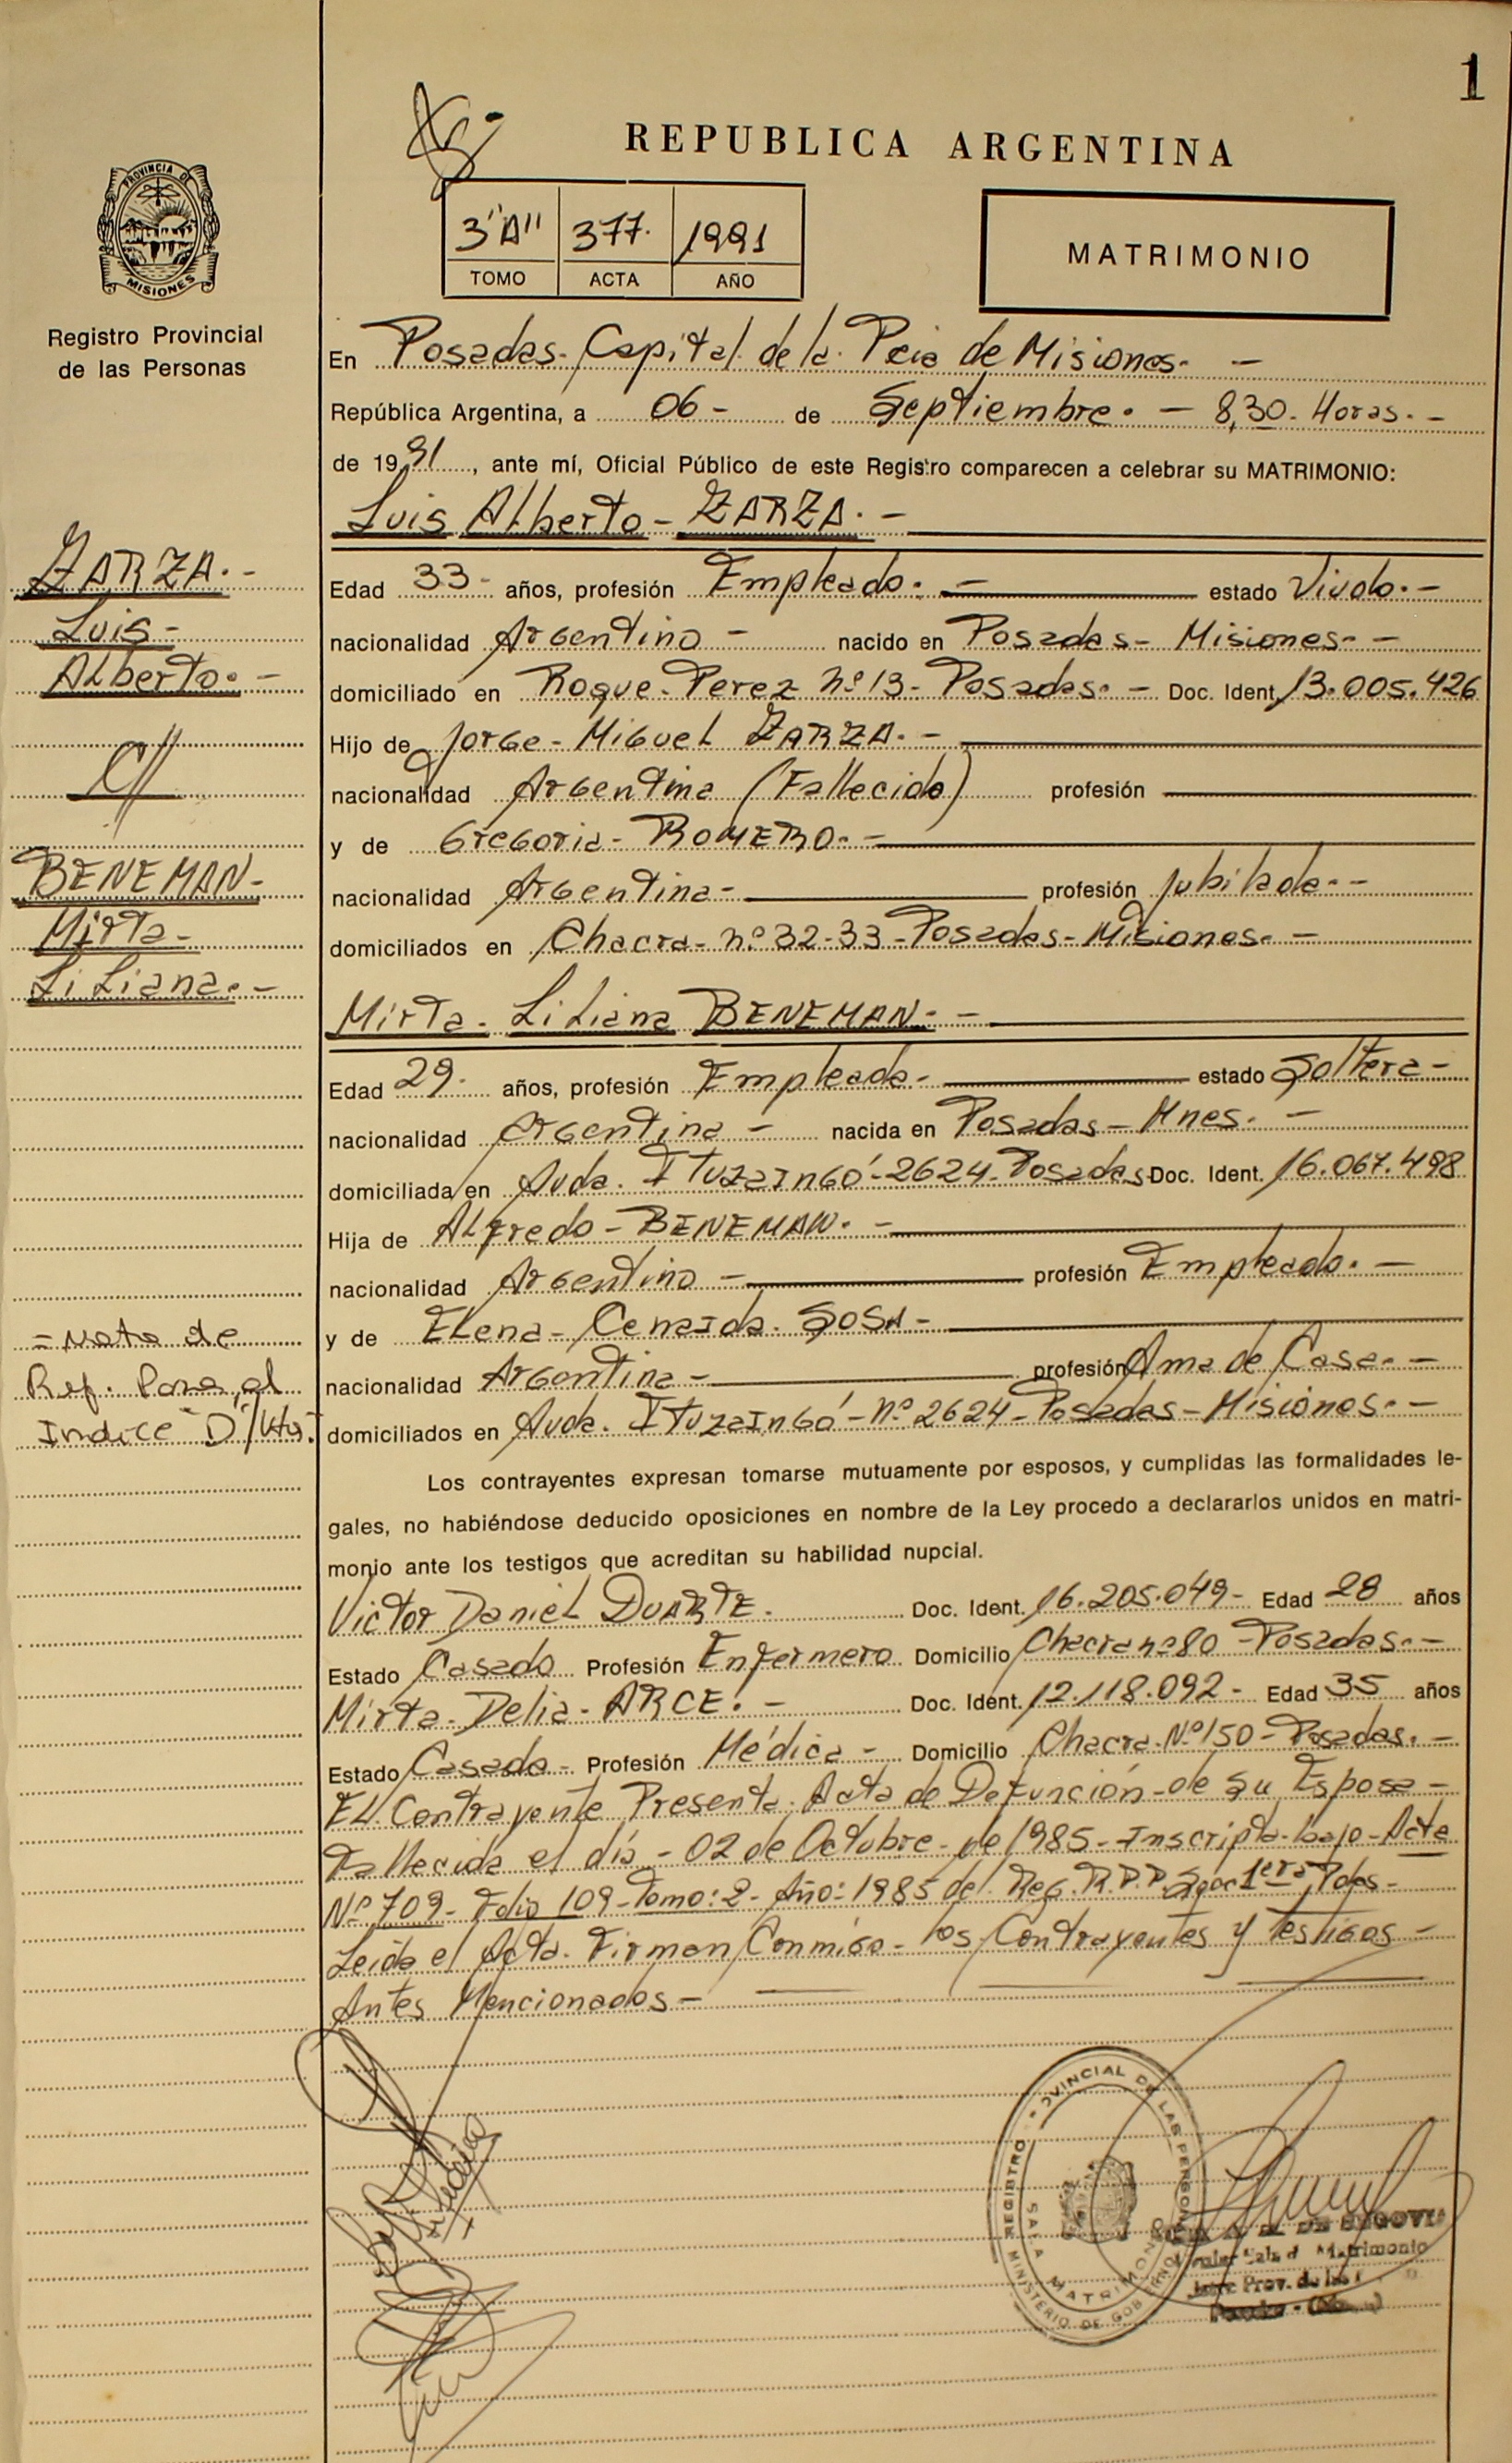 1
REPUBLICA ARGENTINA
PROVINCIA DE
MISIONES
Registro Provincial
de las Personas
3"A" 377. 1991
TOMO ACTA AÑO
MATRIMONIO
En Posadas-Capital de la Pcia de Misiones. -
República Argentina, a 06- de Septiembre. - 8,30- Horas. -
de 1991, ante mí, Oficial Público de este Registro comparecen a celebrar su MATRIMONIO:
Luis Alberto - ZARZA. -
ZARZA. -
Luis -
Alberto. -
C//
BENEMAN-
Mirta-
Liliana. -
Edad 33- años, profesión Empleado. - estado Viudo. -
nacionalidad Argentino - nacido en Posadas - Misiones. -
domiciliado en Roque Perez nº 13- Posadas. - Doc. Ident. 13.005.426
Hijo de Jorge - Miguel ZARZA. -
nacionalidad Argentina (Fallecido) profesión
y de Gregoria - ROMERO. -
nacionalidad Argentina - profesión Jubilada. -
domiciliados en Chacra - nº 32-33 - Posadas - Misiones. -
Mirta - Liliana BENEMAN. -
Edad 29- años, profesión Empleada. - estado Soltera -
nacionalidad Argentina - nacida en Posadas - Mnes. -
domiciliada en Avda. Ituzaingó - 2624 - Posadas Doc. Ident. 16.067.498
Hija de Alfredo - BENEMAN. -
nacionalidad Argentino - profesión Empleado. -
y de Elena - Cenaida - SOSA -
nacionalidad Argentina - profesión Ama de Casa. -
domiciliados en Avda. Ituzaingó - nº 2624 - Posadas - Misiones. -
= Nota de
Ref. Pasa al
Indice "D"
Los contrayentes expresan tomarse mutuamente por esposos, y cumplidas las formalidades le-
gales, no habiéndose deducido oposiciones en nombre de la Ley procedo a declararlos unidos en matri-
monio ante los testigos que acreditan su habilidad nupcial.
Victor Daniel DUARTE. Doc. Ident. 16.205.049- Edad 28 años
Estado Casado Profesión Enfermero Domicilio Chacra nº 80 - Posadas. -
Mirta - Delia - ARCE. - Doc. Ident. 12.118.092- Edad 35 años
Estado Casada - Profesión Médica - Domicilio Chacra Nº 150 - Posadas. -
El Contrayente Presenta Acta de Defunción de su Esposa -
Fallecida el día - 02 de Octubre - de 1985 - Inscripta - bajo - Acta
Nº 709 - Folio 109 - Tomo: 2 - Año: 1985 del Reg. R.P.P. Secc 1era Pdas -
Leida el Acta. Firman Conmigo - los Contrayentes y Testigos -
Antes Mencionados -
REGISTRO PROVINCIAL DE LAS PERSONAS
SALA MATRIMONIO
MINISTERIO DE GOBIERNO
DE SEGOVIA
Matrimonio
Prov. de las